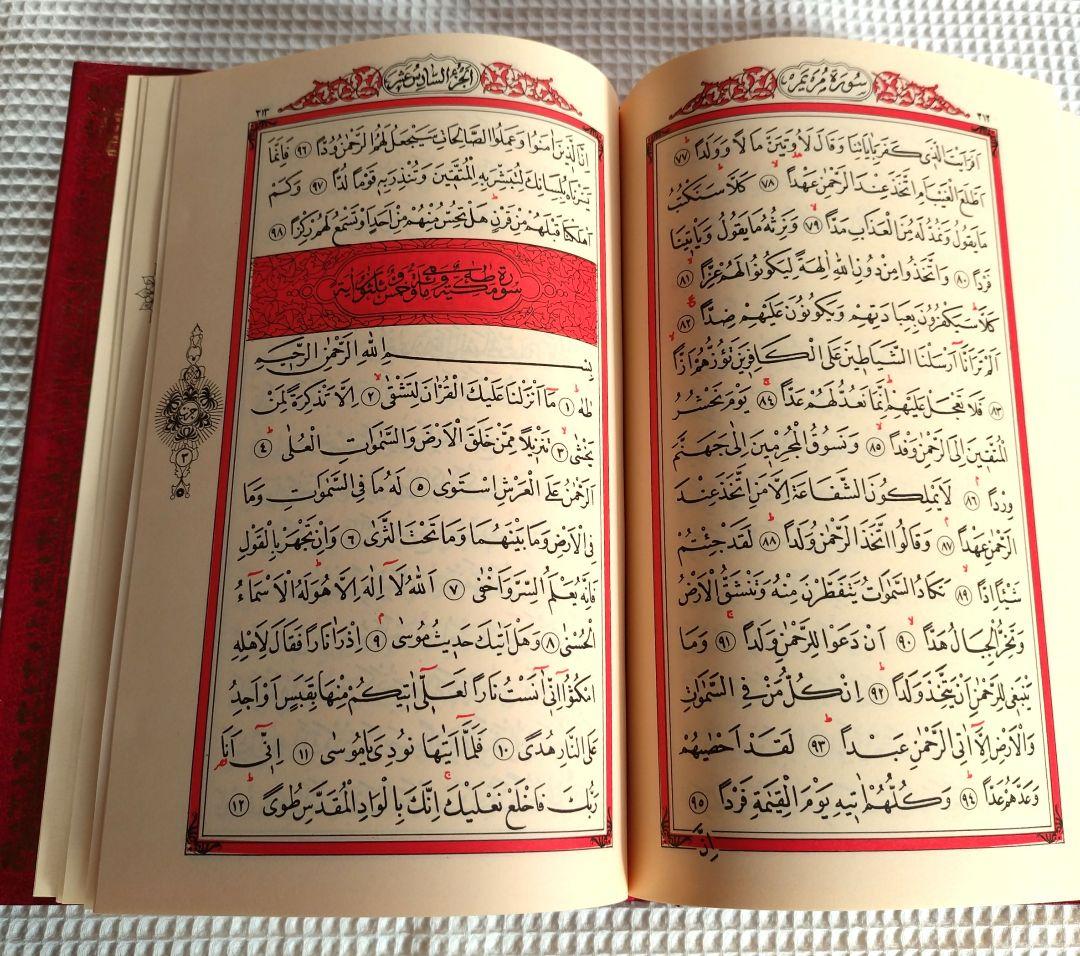 سورة مريم
٣١٢
افرايت الذى كفر باياتنا وقال لاوتين مالا وولدا ٧٧
اطلع الغيب ام اتخذ عند الرحمن عهدا ٧٨ كلا سنكتب
ما يقول ونمد له من العذاب مدا ٧٩ ونرثه ما يقول وياتينا
فردا ٨٠ واتخذوا من دون الله الهة ليكونوا لهم عزا ٨١
كلا سيكفرون بعبادتهم ويكونون عليهم ضدا ٨٢
الم تر انا ارسلنا الشياطين على الكافرين تؤزهم ازا
٨٣ فلا تعجل عليهم انما نعد لهم عدا ٨٤ يوم نحشر
المتقين الى الرحمن وفدا ٨٥ ونسوق المجرمين الى جهنم
وردا ٨٦ لا يملكون الشفاعة الا من اتخذ عند
الرحمن عهدا ٨٧ وقالوا اتخذ الرحمن ولدا ٨٨ لقد جئتم
شيئا ادا ٨٩ تكاد السموات يتفطرن منه وتنشق الارض
وتخر الجبال هدا ٩٠ ان دعوا للرحمن ولدا ٩١ وما
ينبغى للرحمن ان يتخذ ولدا ٩٢ ان كل من فى السموات
والارض الا اتى الرحمن عبدا ٩٣ لقد احصيهم
وعدهم عدا ٩٤ وكلهم اتيه يوم القيمة فردا ٩٥
ان
الجزء السادس عشر
٣١٣
ان الذين امنوا وعملوا الصالحات سيجعل لهم الرحمن ودا ٩٦ فانما
يسرناه بلسانك لتبشر به المتقين وتنذر به قوما لدا ٩٧ وكم
اهلكنا قبلهم من قرن هل تحس منهم من احد او تسمع لهم ركزا ٩٨
سورة طه مكية وهى مائة وخمس وثلثون اية
بسم الله الرحمن الرحيم
طه ١ ما انزلنا عليك القران لتشقى ٢ الا تذكرة لمن
يخشى ٣ تنزيلا ممن خلق الارض والسموات العلى ٤
الرحمن على العرش استوى ٥ له ما فى السموات وما
فى الارض وما بينهما وما تحت الثرى ٦ وان تجهر بالقول
فانه يعلم السر واخفى ٧ الله لا اله الا هو له الاسماء
الحسنى ٨ وهل اتيك حديث موسى ٩ اذ را نارا فقال لاهله
امكثوا انى انست نارا لعلى اتيكم منها بقبس او اجد
على النار هدى ١٠ فلما اتيها نودى يا موسى ١١ انى انا
ربك فاخلع نعليك انك بالواد المقدس طوى ١٢
حزب
٣